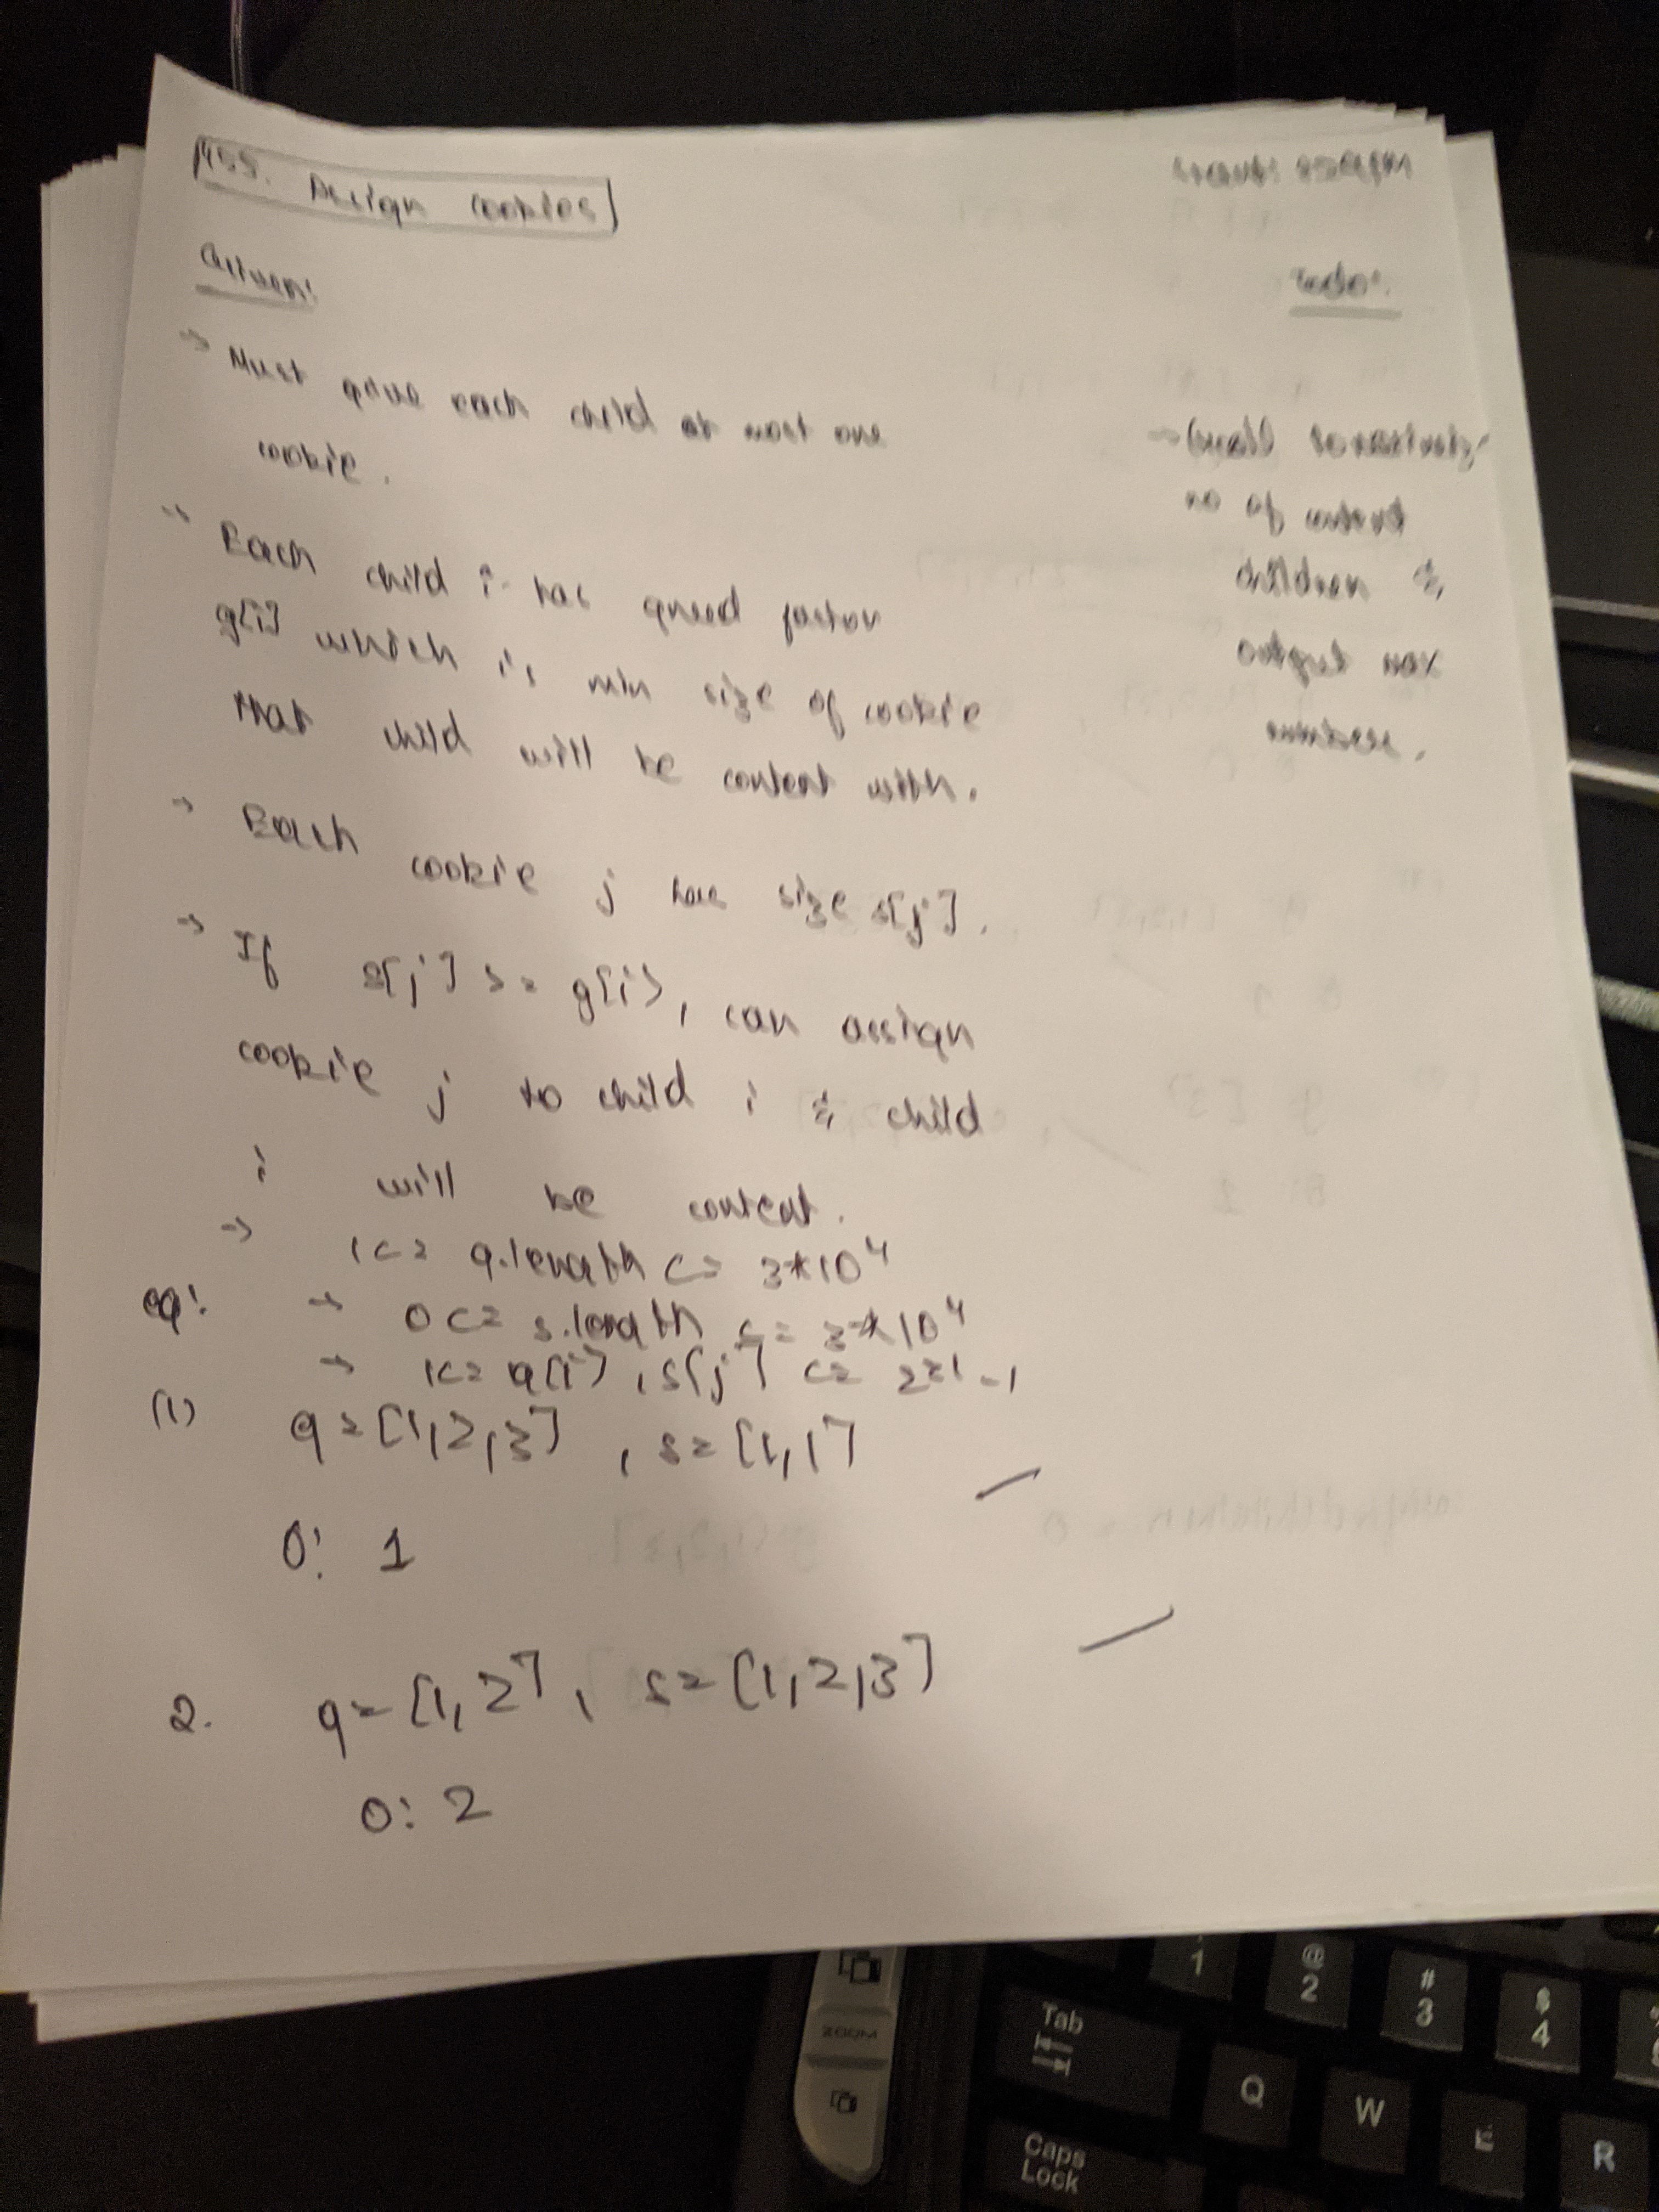 455. Assign Cookies
Given:
Todo:
→ Must give each child at most one
cookie.
→ Each child i has greed factor
g[i] which is min size of cookie
that child will be content with.
→ Each cookie j has size s[j].
→ If s[j] >= g[i], can assign
cookie j to child i & child
i will be content.
→ 1 <= g.length <= 3*10^4
eg:
→ 0 <= s.length <= 3*10^4
→ 1 <= g[i], s[j] <= 231 - 1
(1) g = [1,2,3], s = [1,1]
O: 1
2. g = [1,2], s = [1,2,3]
O: 2
no of content
children &
output max
number.
ZOOM
1
@
2
#
3
$
4
Tab
Q
W
E
R
Caps
Lock